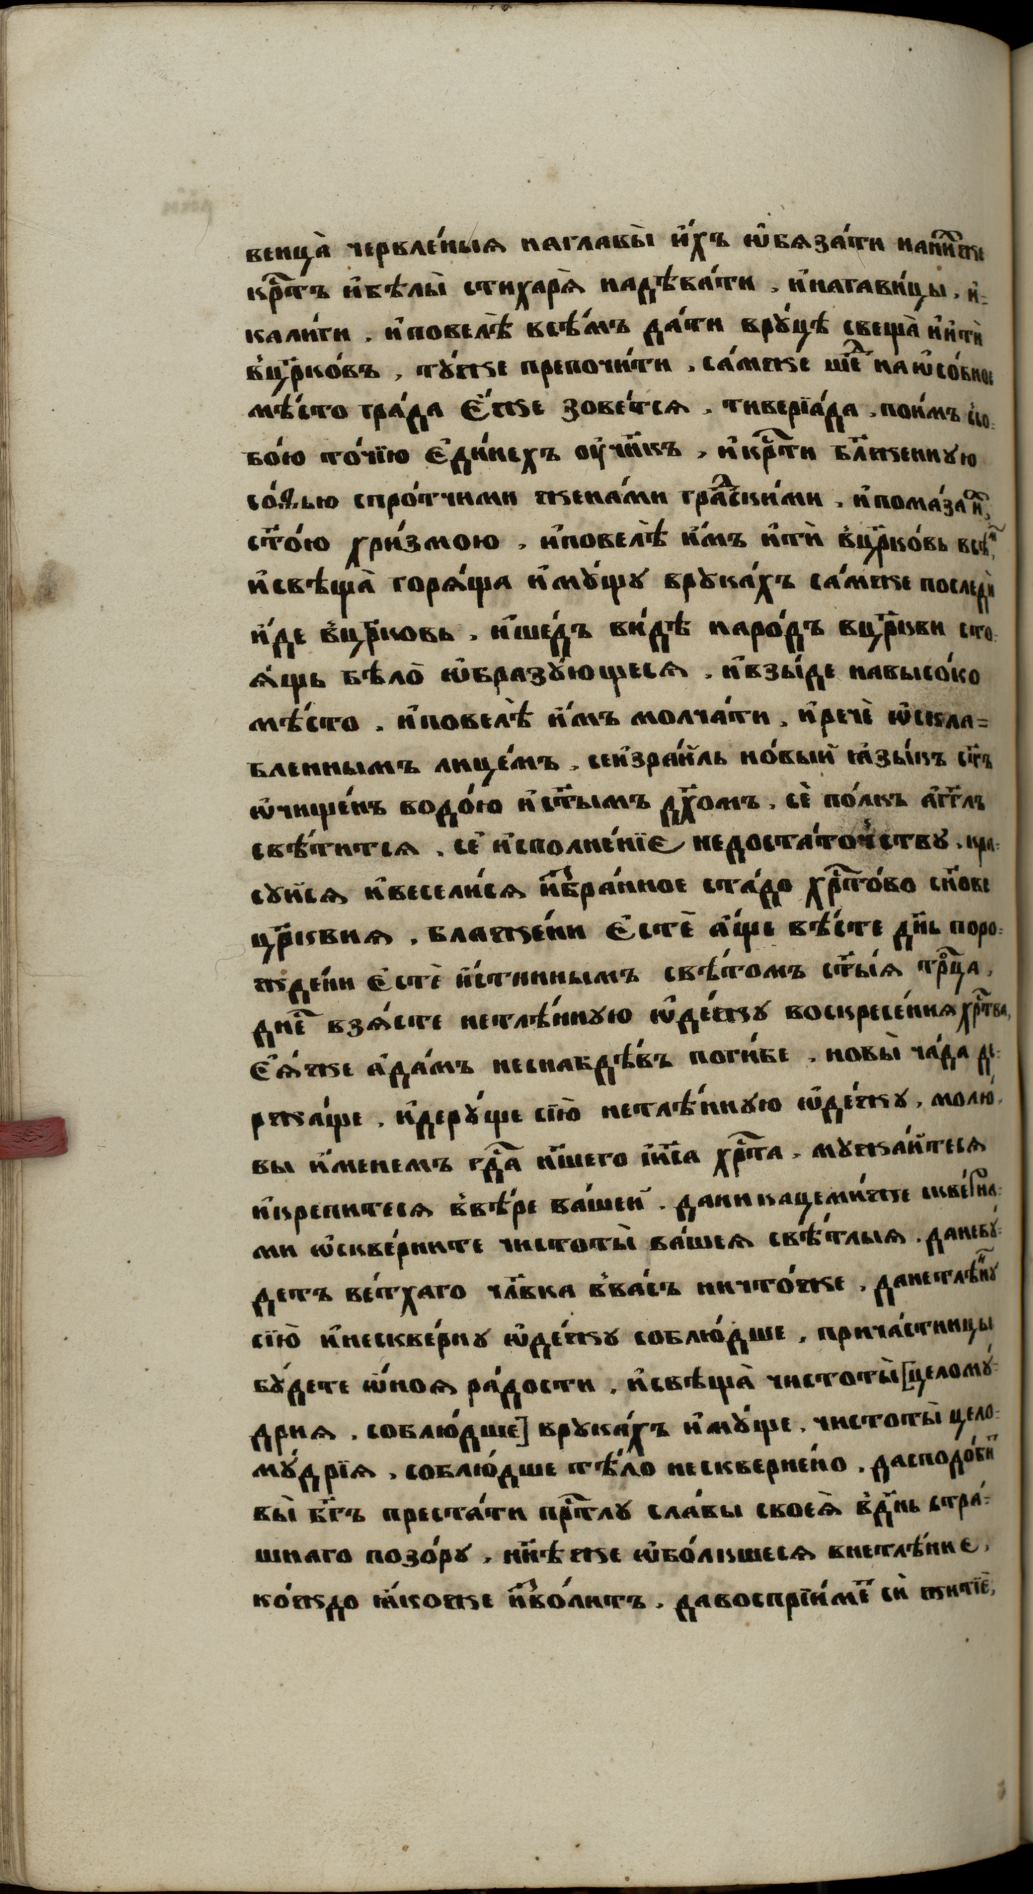 венца̀ червле́ныя наглавы̀ и҆́хъ ѡ҆бяза́ти нани́хже
крⷭ҇тъ и҆бѣлы̀ стихаря̀ надѣва́ти . и҆нагави́цы . и҆=
кали́ги . и҆повелѣ̀ всѣ́мъ да́ти вру́цѣ свеща̀ и҆и҆тѝ
вцр҃ко́въ , ту́тже препочи́ти , са́мтже шеⷣ наѡ҆со́бное
мѣ́сто гра́да є҆́же зове́тся , тиверїа́да . пои́мъ ссо=
бо́ю то́чїю є҆ди́нехъ ѹ҆чн҃къ , и҆крⷭ҇ти бл҃женную
со́ѳью спро́тчими жена́ми граⷣски́ми , и҆пома́за и҆ⷯ
ст҃о́ю хри́змою , и҆повелѣ̀ и҆́мъ и҆тѝ вцр҃ко́вь всѣⷨ
и҆свѣща̀ горя́ща и҆му́щу врука́хъ са́мже последѝ
и҆́де вцр҃ковь . и҆ше́дъ ви́дѣ наро́дъ вцр҃кви сто=
я́щь бѣло̀ ѡ҆бразу́ющеся , и҆взы́де навысо́ко
мѣ́сто . и҆повелѣ̀ и҆́мъ молча́ти , и҆речѐ ѡ҆скла=
бленнымъ лице́мъ , сеи҆зра́иль но́вый ꙗ҆зы́къ ст҃ъ
ѡ҆чище́нъ водо́ю и҆ст҃ымъ дх҃омъ , сѐ по́лкъ а҆́гг҃лъ
свѣ́тится . сѐ и҆сполне́нїє недоста́точству . кра=
су́ися и҆весели́ся и҆збра́нное ста́до хрⷭ҇то́во сн҃ове
цр҃квия . блаже́ни є҆стѐ а҆́ще вѣ́сте дн҃ь поро=
жде́ни є҆стѐ и҆́стиннымъ свѣ́томъ ст҃ы́я трⷪ҇ца ,
днеⷭ҇ взя́сте нетлѣ́нную ѡ҆де́жу воскресе́ния хрⷭ҇това ,
є҆я́же а҆да́мъ неснабдѣ́въ поги́бе . новы̀ ча́да де=
ржа́ще . и҆деру́ще сїю̀ нетлѣ́нную ѡ҆де́жу , молю̀
вы и҆́менемъ гдⷭ҇а на́шего їи҃са хрⷭ҇та , мужа́йтеся
и҆крепитеся ввѣ́ре ва́шей . даникацеми́же скве́рна=
ми ѡ҆скве́рните чистоты̀ ва́шея свѣ́тлыя . данебу́=
детъ ве́тхаго чл҃вка вва́съ ничто́же , данетлѣ́нну
сїю̀ и҆нескве́рну ѡ҆де́жу соблю́дше , прича́стницы
бу́дете ѡ҆́ноя ра́дости . и҆свѣща̀ чистоты̀ [целому́=
дрия . соблю́дше] врука́хъ и҆му́ще . чистоты̀ цело=
му́дрїя . соблю́дше тѣ́ло нескверне́но . дасподо́бит
вы̀ бг҃ъ преста́ти прⷭ҇тлу сла́вы своея̀ вдн҃ь стра́=
шнаго позо́ру , нн҃ѣже ѡ҆бо́лкшеся внетлѣ́ние ,
ко́ждо ꙗ҆́коже и҆зво́литъ . давоспрїи́метъ сѝ житїѐ ,